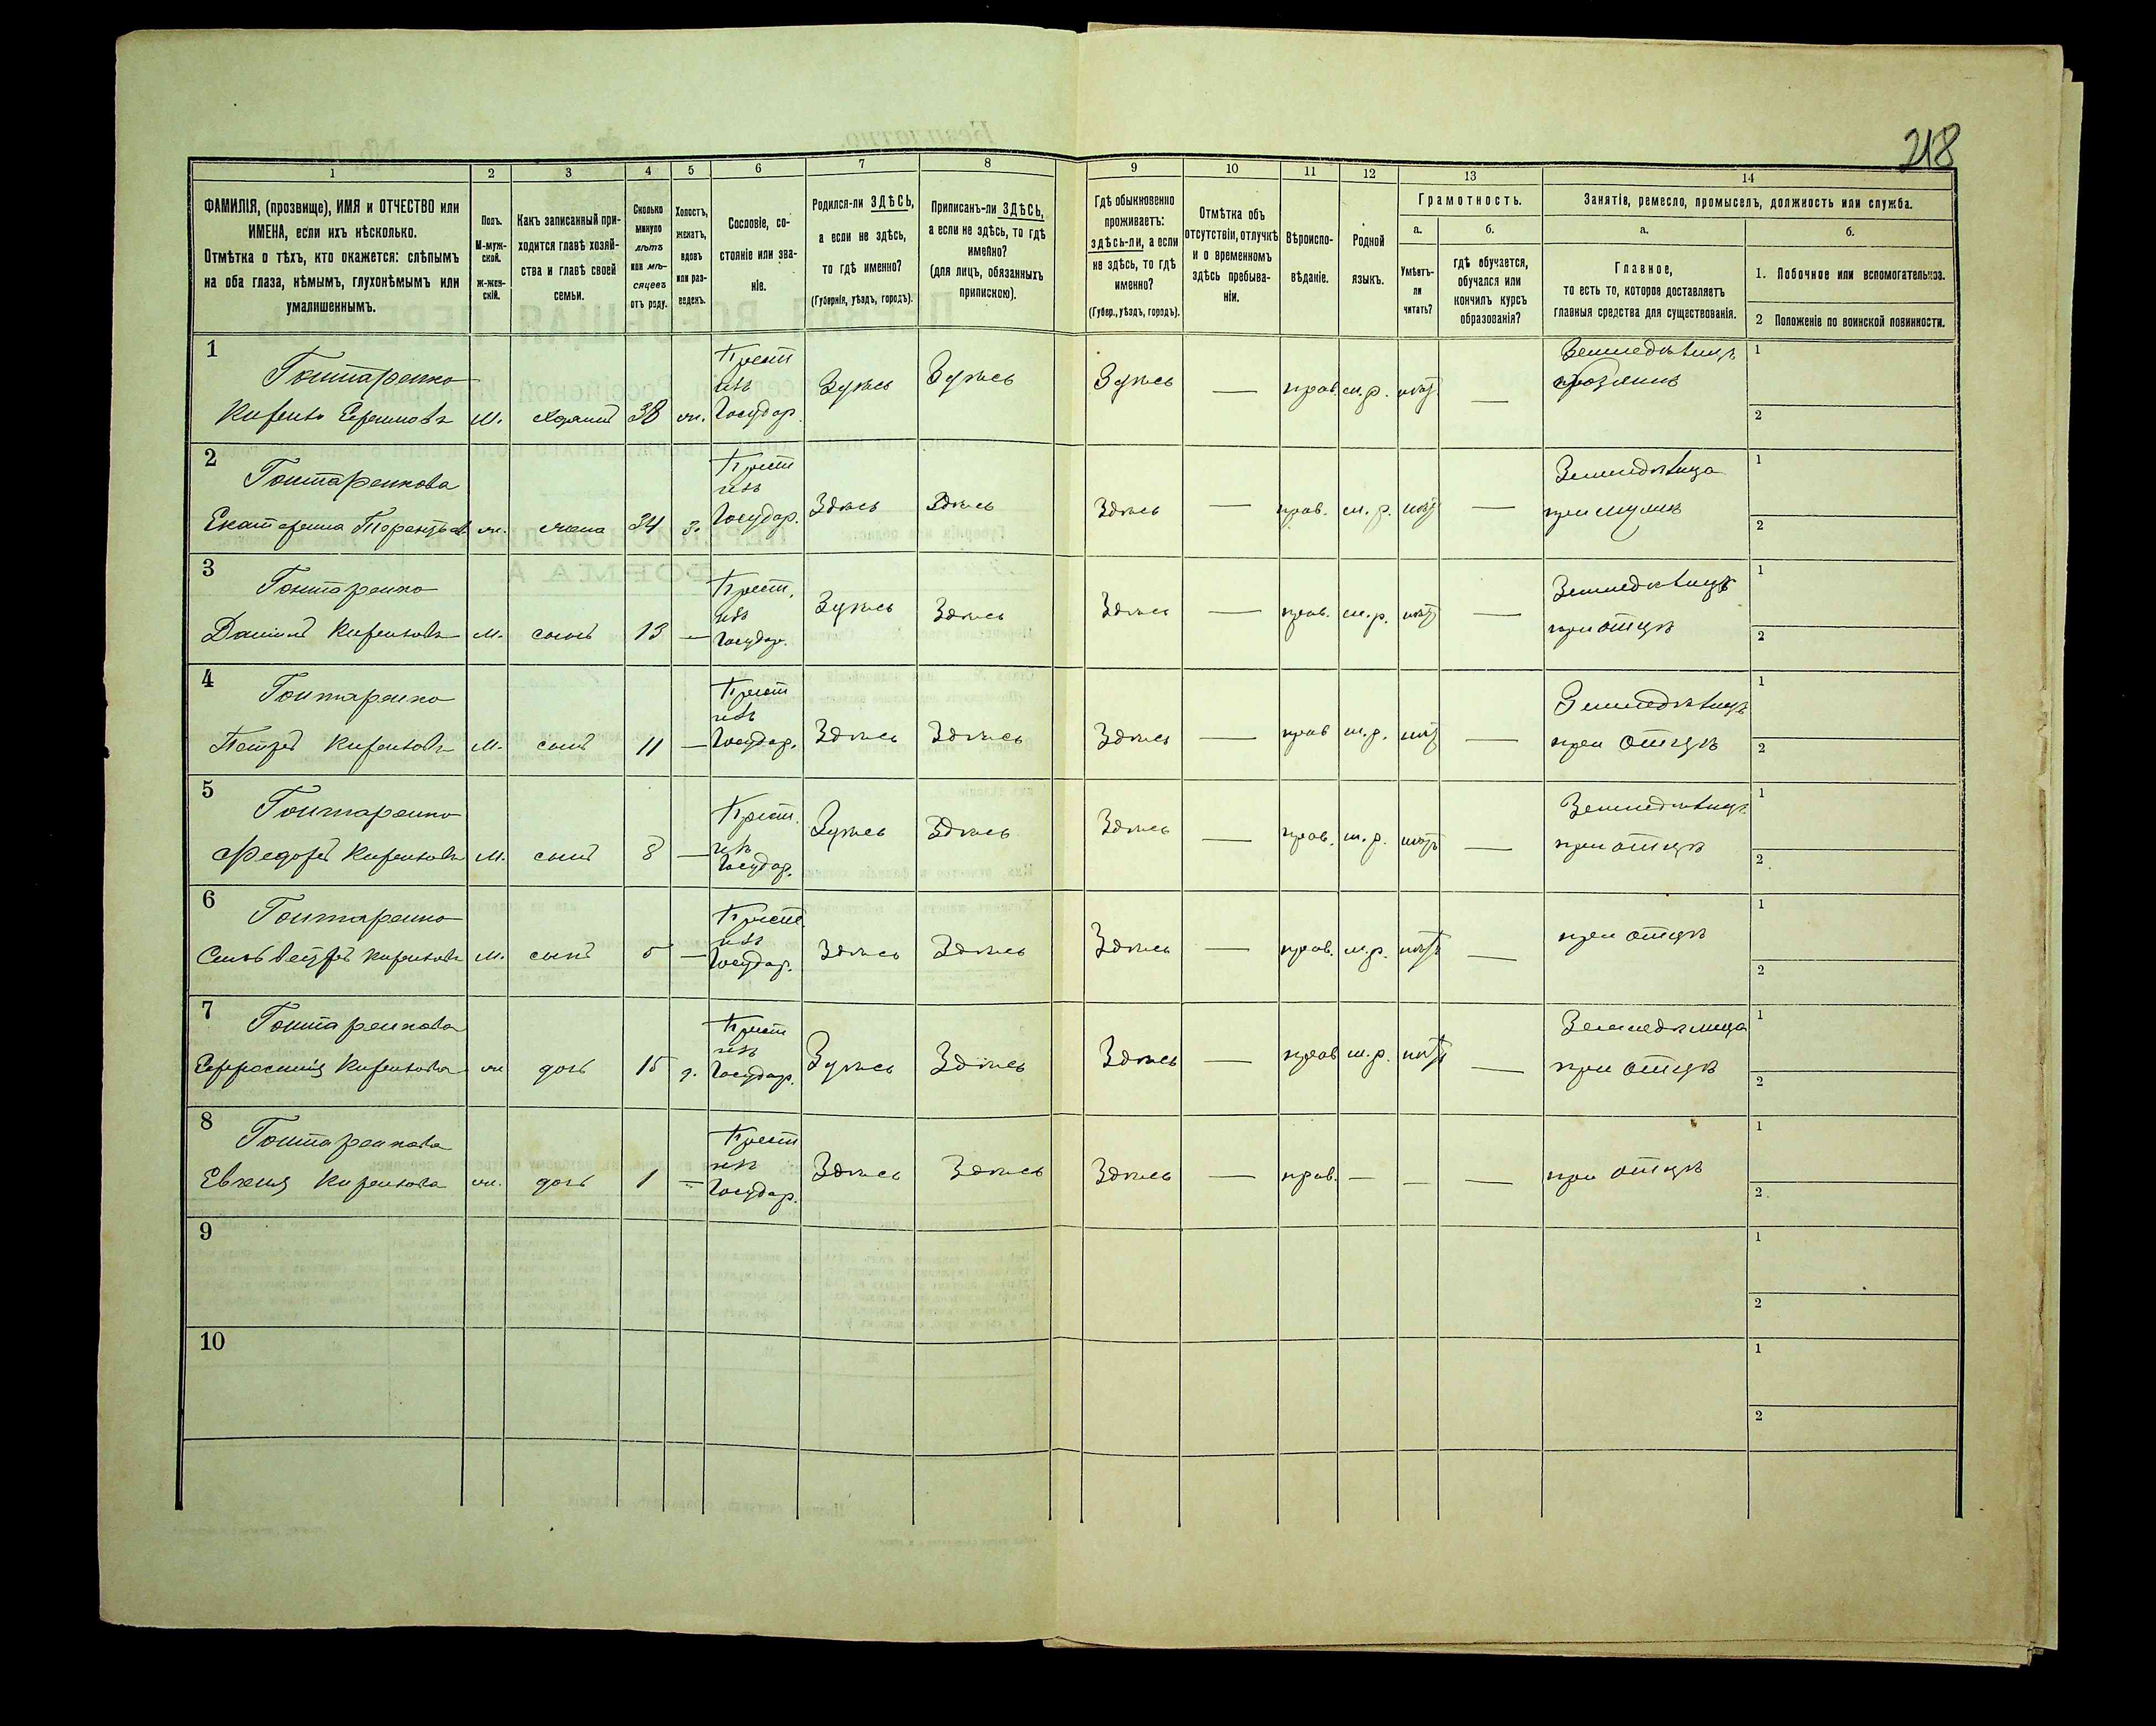 218
1 2 3 4 5 6 7 8 9 10 11 12 13 14
ФАМИЛІЯ, (прозвище), ИМЯ и ОТЧЕСТВО или
ИМЕНА, если ихъ нѣсколько.
Отмѣтка о тѣхъ, кто окажется: слѣпымъ
на оба глаза, нѣмымъ, глухонѣмымъ или
умалишеннымъ.
Полъ.
М-муж-
ской.
ж-жен-
скій.
Какъ записанный при-
ходится главѣ хозяй-
ства и главѣ своей
семьи.
Сколько
минуло
лѣтъ
или мѣ-
сяцевъ
отъ роду.
Холостъ,
женатъ,
вдовъ
или раз-
веденъ.
Сословіе, со-
стояніе или зва-
ніе.
Родился-ли ЗДѢСЬ,
а если не здѣсь,
то гдѣ именно?
(Губернія, уѣздъ, городъ).
Приписанъ-ли ЗДѢСЬ,
а если не здѣсь, то гдѣ
именно?
(для лицъ, обязанныхъ
припискою).
Гдѣ обыкновенно
проживаетъ:
здѣсь-ли, а если
не здѣсь, то гдѣ
именно?
(Губер., уѣздъ, городъ).
Отмѣтка объ
отсутствіи, отлучкѣ
и о временномъ
здѣсь пребыва-
ніи.
Вѣроиспо-
вѣданіе.
Родной
языкъ.
Грамотность.
а.
Умѣетъ-
ли
читать?
б.
гдѣ обучается,
обучался или
кончилъ курсъ
образованія?
Занятіе, ремесло, промыселъ, должность или служба.
а.
Главное,
то есть то, которое доставляетъ
главныя средства для существованія.
б.
1. Побочное или вспомогательное.
2 Положеніе по воинской повинности.
1 Гонтаренко Крест. изъ Государ. Здѣсь Здѣсь Здѣсь — прав. м.р. нѣт — Земледѣлецъ хозяинъ 1
М. хозяинъ 38 ж. 2
2 Гонтаренкова Крест изъ Государ. Здѣсь Здѣсь Здѣсь — прав. м.р. нѣт — Земледѣлица при мужѣ 1
Екатерина ж. жена 34 з. 2
3 Гонтаренко Крест. изъ Государ. Здѣсь Здѣсь Здѣсь — прав. м.р. нѣт — Земледѣлецъ при отцѣ 1
Даниилъ М. сынъ 13 — 2
4 Гонтаренко Крест изъ Государ. Здѣсь Здѣсь Здѣсь — прав м.р. нѣт — Земледѣлецъ при отцѣ 1
Петръ М. сынъ 11 — 2
5 Гонтаренко Крест. изъ Государ. Здѣсь Здѣсь Здѣсь — прав. м.р. нѣтъ — Земледѣлецъ при отцѣ 1
Федоръ М. сынъ 8 — 2
6 Гонтаренко Крест. изъ Государ. Здѣсь Здѣсь Здѣсь — прав. м.р. нѣтъ — при отцѣ 1
М. сынъ 5 — 2
7 Гонтаренкова Крест изъ Государ. Здѣсь Здѣсь Здѣсь — прав м.р. нѣтъ — Земледѣлица при отцѣ 1
ж дочь 15 2
8 Гонтаренкова Крест изъ Государ. Здѣсь Здѣсь Здѣсь — прав. — — — при отцѣ 1
ж. дочь 1 — 2
9 1
2
10 1
2